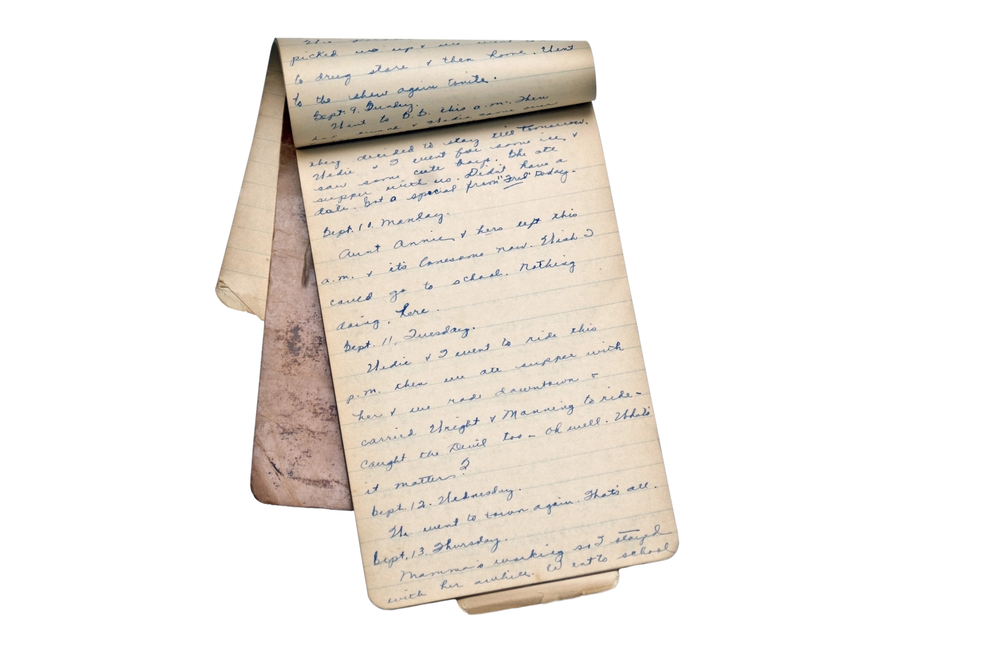 picked us up & we went
to drug store & then home. Went
to the show again tonite.
Sept. 9. Sunday.
Went to B.B. this a.m. Then
they decided to stay till tomorrow.
& I went for some ice, &
saw some cute boys. She ate
supper with us. Didn't have a
date. Got a special from "Fred" today.
Sept. 10. Monday.
Aunt Annie, & hers left this
a.m. & it's lonesome now. Wish I
could go to school. Nothing
doing here.
Sept. 11. Tuesday.
& I went to ride this
p.m. then we ate supper with
her & we rode downtown &
carried Wright & Manning to ride -
caught the Devil too - Oh well. What's
it matter?
Sept. 12. Wednesday.
We went to town again. That's all.
Sept. 13. Thursday.
Mamma's working so I stayed
with her awhile. Went to school